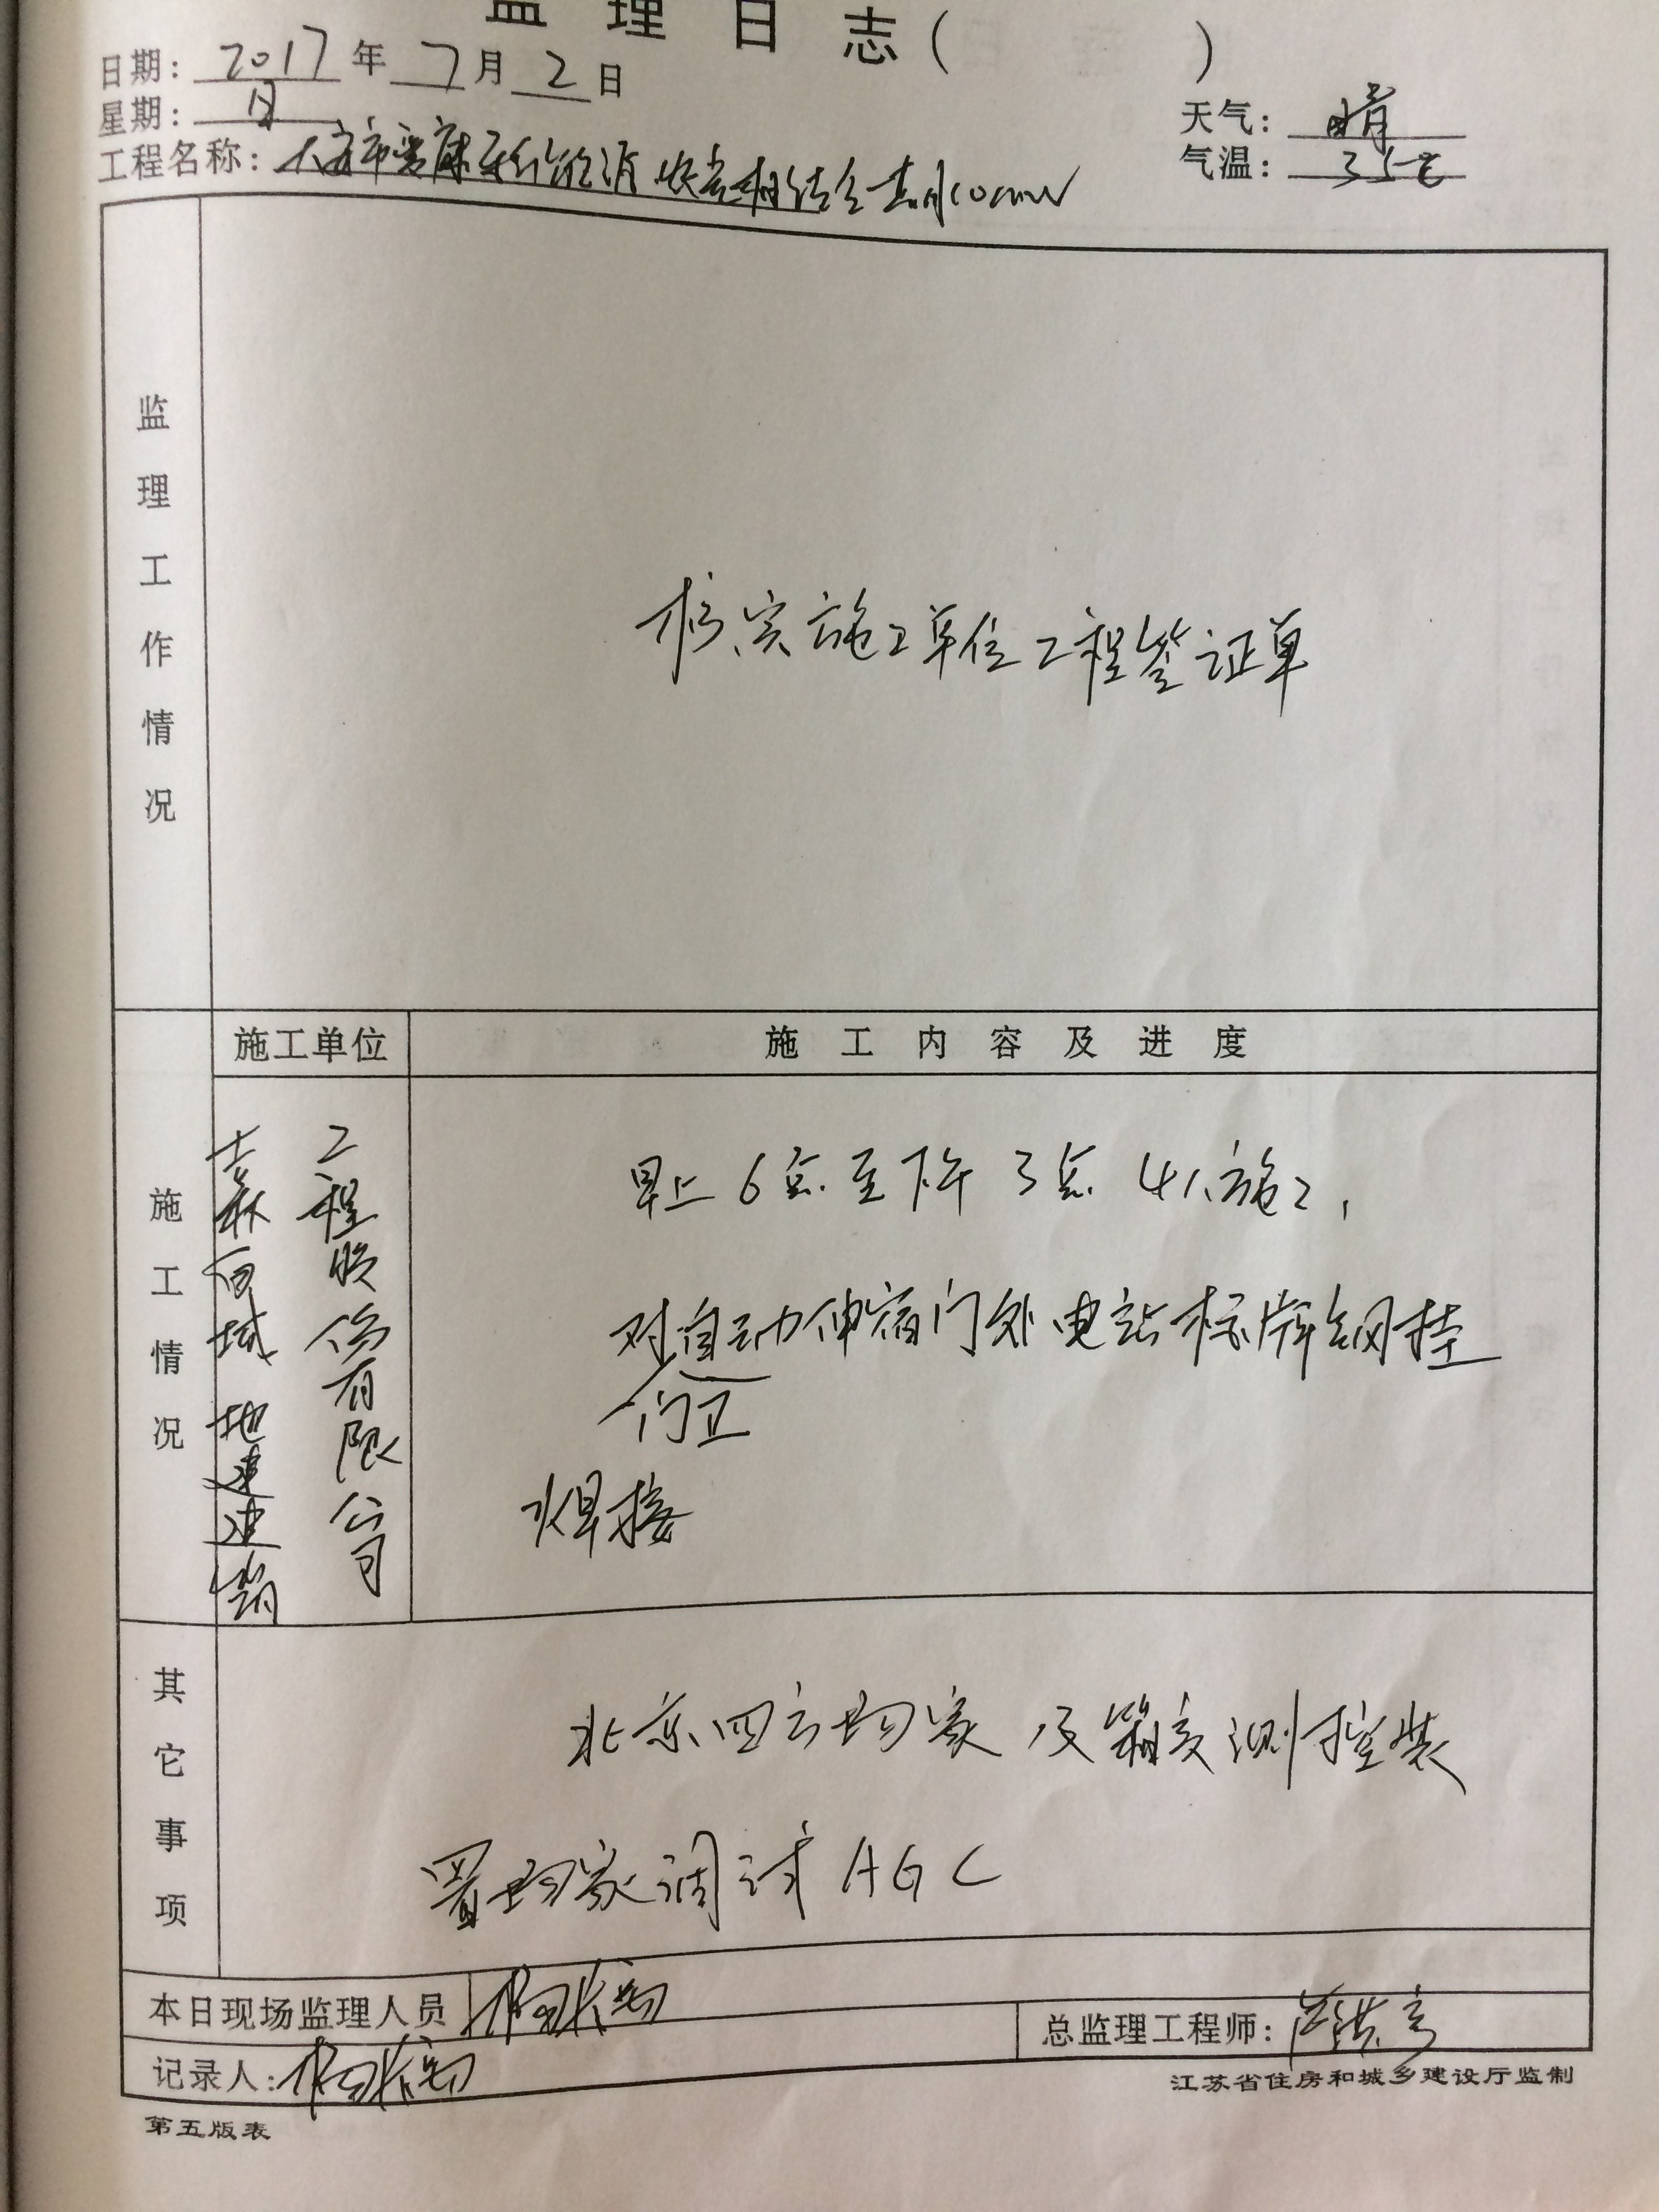 监理日志( )
日期: 2017 年 7 月 2 日
星期: 日
天气: 晴
气温: 35℃
工程名称: 大安市 新能源 相结合
监理工作情况
核实施工单位工程签证单
施工单位
施工内容及进度
施工情况
森 地
工程股份有限公司
早上6点至下午3点 4人施工,
对自动伸缩门外电站标牌钢挂
门卫
焊接
其它事项
北京四方场家 及箱变测控装
置场家调试AGC
本日现场监理人员
总监理工程师:
记录人:
江苏省住房和城乡建设厅监制
第五版表